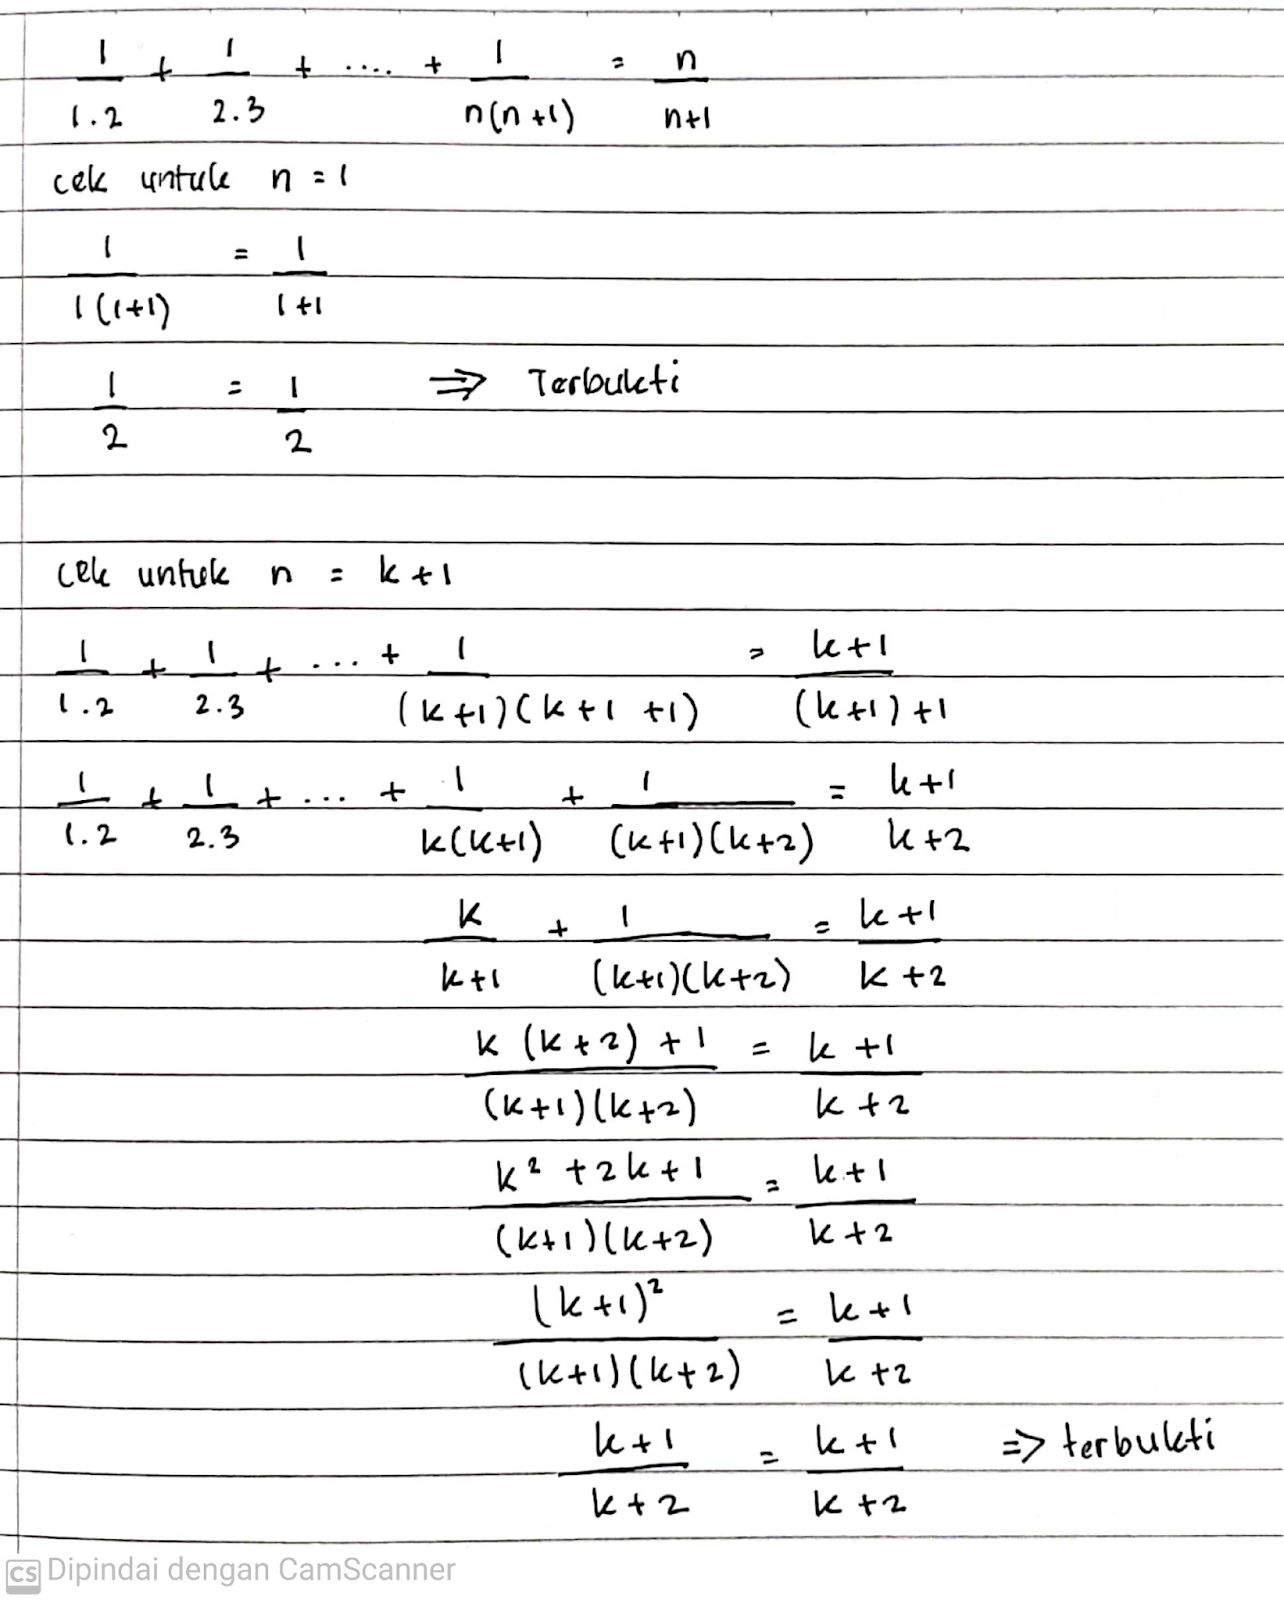 1/1.2 + 1/2.3 + .... + 1/n(n+1) = n/n+1
cek untuk n = 1
1/1(1+1) = 1/1+1
1/2 = 1/2 ⇒ Terbukti
cek untuk n = k+1
1/1.2 + 1/2.3 + ... + 1/(k+1)(k+1+1) = k+1/(k+1)+1
1/1.2 + 1/2.3 + ... + 1/k(k+1) + 1/(k+1)(k+2) = k+1/k+2
k/k+1 + 1/(k+1)(k+2) = k+1/k+2
k(k+2)+1/(k+1)(k+2) = k+1/k+2
k²+2k+1/(k+1)(k+2) = k+1/k+2
(k+1)²/(k+1)(k+2) = k+1/k+2
k+1/k+2 = k+1/k+2 ⇒ terbukti
CS Dipindai dengan CamScanner